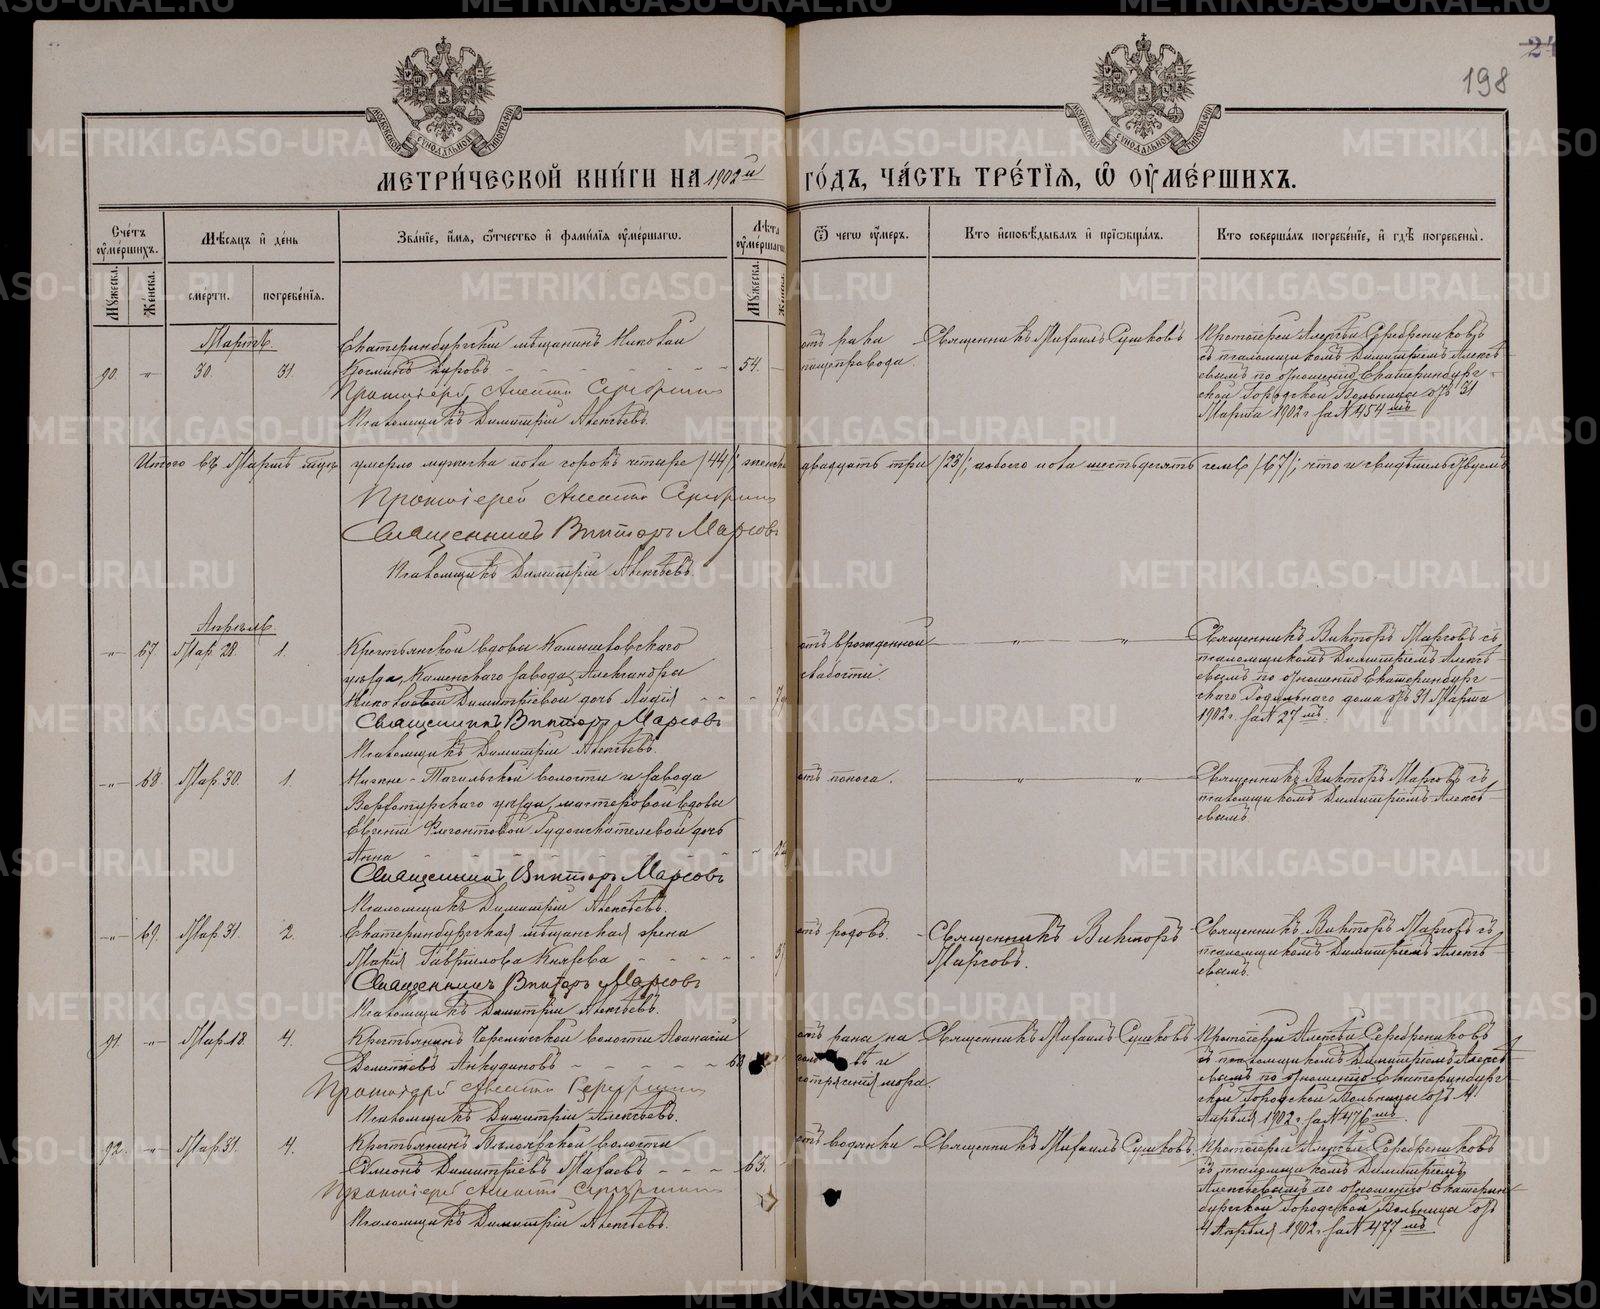 198
24
МЕТРИ́ЧЕСКОЙ КНИ́ГИ НА 1902й ГО́ДЪ, ЧА́СТЬ ТРЕ́ТІѦ, Ѡ҆ ОУ҆МЕ́РШИХЪ.
Сче́тъ оу҆ме́ршихъ.
Мꙋ́жеска.
Же́нска.
Мѣ́сяцъ и҆ де́нь
сме́рти.
погребе́нїѧ.
Зва́нїе, и҆́мѧ, ѻ҆́тчество и҆ фами́лїѧ оу҆ме́ршагѡ.
Лѣ́та оу҆ме́ршагѡ
Мꙋ́жеска.
Ѿ чегѡ̀ оу҆́меръ.
Кто̀ и҆сповѣ́дывалъ и҆ прїѡбща́лъ.
Кто̀ соверша́лъ погребе́нїе, и҆ гдѣ̀ погребены̀.
Мартъ.
90. " 30. 31.
Екатеринбургскій мѣщанинъ Николай
Дуровъ 54.
Протоіерей Алексій Серебрениковъ
Псаломщикъ Димитрій Алексѣевъ.
отъ рака
пищепровода.
Священникъ Михаилъ Сушковъ
Протоіерей Алексѣй Серебрениковъ
съ псаломщикомъ Димитріемъ Алексѣ-
евымъ по отношенію Екатеринбург-
ской Городской Больницы отъ 31
Марта 1902 г. за № 454 мъ
Итого въ Мартѣ умерло мужеска пола сорокъ четыре /44/; женска двадцать три /23/; обоего пола шестьдесятъ семь /67/; что и свидѣтельствуемъ
Протоіерей Алексій Серебрениковъ
Священникъ Викторъ Марсовъ
Псаломщикъ Димитрій Алексѣевъ.
Апрѣль.
" 67. Мар. 28. 1.
Крестьянской вдовы Камышловскаго
уѣзда, Каменскаго завода, Александры
Николаевой Димитріевой дочь Лидія
Священникъ Викторъ Марсовъ
Псаломщикъ Димитрій Алексѣевъ.
отъ врожденной
слабости.
Священникъ Викторъ Марсовъ съ
псаломщикомъ Димитріемъ Алексѣ-
евымъ по отношенію Екатеринбург-
скаго Родильнаго дома отъ 31 Марта
1902 г. за № 27 мъ.
" 68. Мар. 30. 1.
Нижне-Тагильской волости и завода
Верхотурскаго уѣзда, мастеровой вдовы
Евгеніи Рудоискателевой дочь
Анна
Священникъ Викторъ Марсовъ
Псаломщикъ Димитрій Алексѣевъ.
отъ поноса.
Священникъ Викторъ Марсовъ съ
псаломщикомъ Димитріемъ Алексѣ-
евымъ
" 69. Мар. 31. 2.
Екатеринбургская мѣщанская жена
Марія Гавриилова Князева
Священникъ Викторъ Марсовъ
Псаломщикъ Димитрій Алексѣевъ.
отъ родовъ.
Священникъ Викторъ
Марсовъ.
Священникъ Викторъ Марсовъ съ
псаломщикомъ Димитріемъ Алексѣ-
евымъ.
91. " Мар. 18. 4.
Крестьянинъ волости Аѳанасій
Анкудиновъ
Протоіерей Алексій Серебрениковъ
Псаломщикъ Димитрій Алексѣевъ.
отъ раны на
и
сотрясенія мозга.
Священникъ Михаилъ Сушковъ
Протоіерей Алексѣй Серебрениковъ
съ псаломщикомъ Димитріемъ Алексѣ-
евымъ по отношенію Екатеринбург-
ской Городской Больницы отъ 4
Апрѣля 1902 г. за № 476 мъ.
92. " Мар. 31. 4.
Крестьянинъ волости
Димитріевъ 65.
Протоіерей Алексій Серебрениковъ
Псаломщикъ Димитрій Алексѣевъ.
отъ водянки
Священникъ Михаилъ Сушковъ
Протоіерей Алексѣй Серебрениковъ
съ псаломщикомъ Димитріемъ
Алексѣевымъ по отношенію Екатерин-
бургской Городской Больницы отъ
4 Апрѣля 1902 г. за № 477 мъ
METRIKI.GASO-URAL.RU